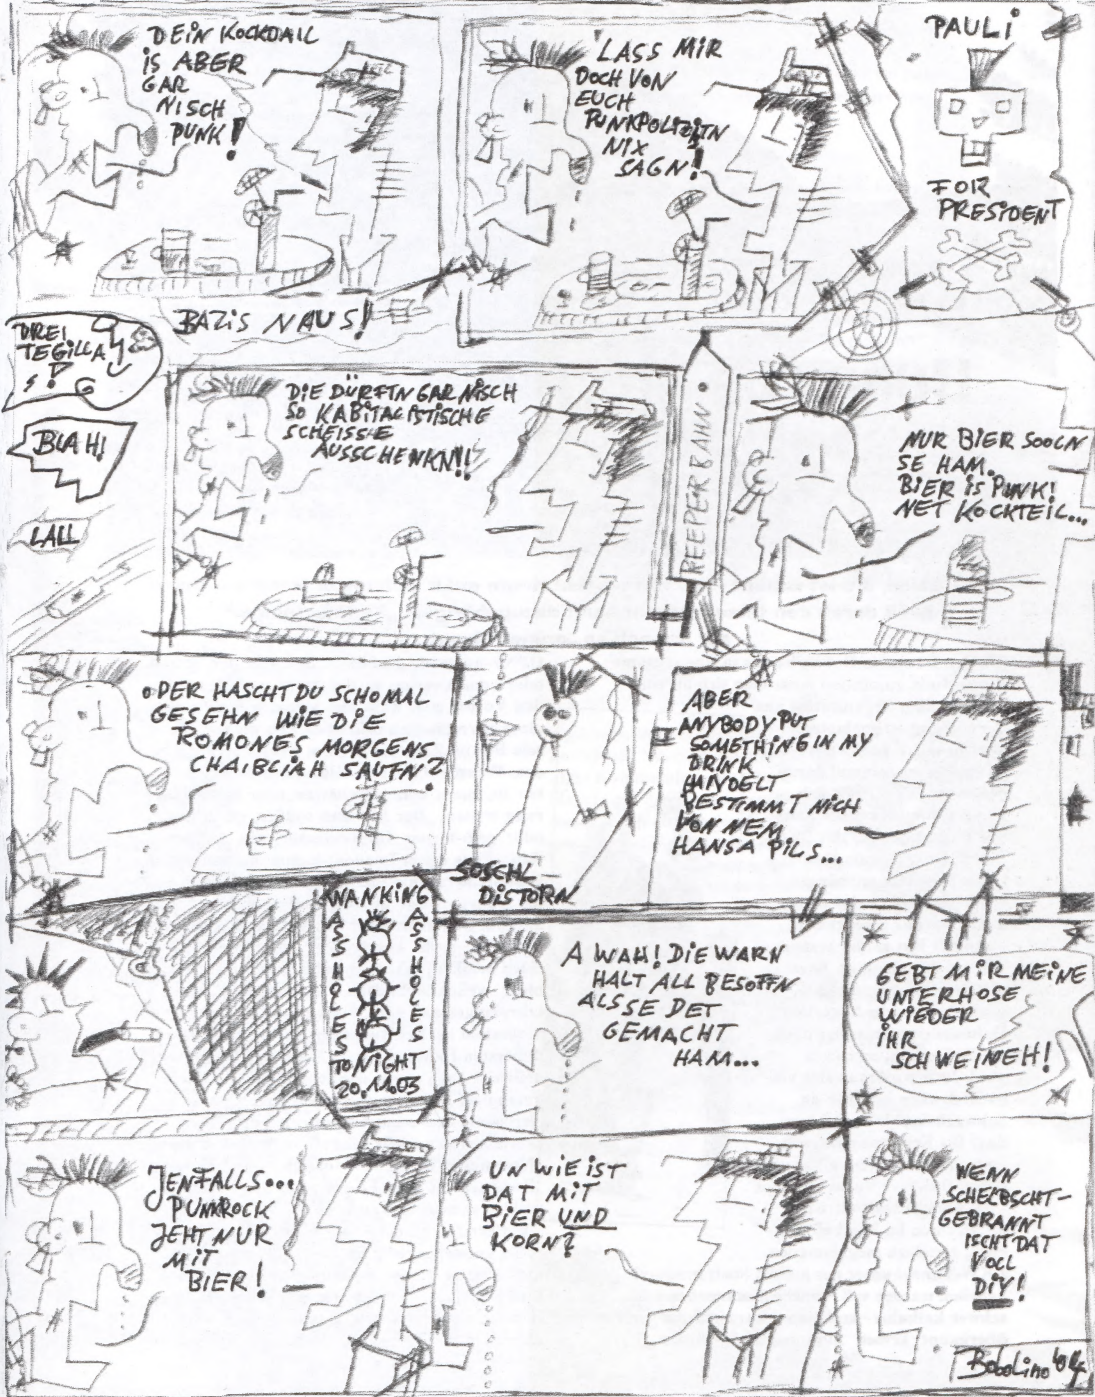 DEIN KOCKDAIL
IS ABER
GAR
NISCH
PUNK!
LASS MIR
DOCH VON
EUCH
PUNKPOLIZITN
NIX
SAGN!
PAULI
FOR
PRESIDENT
BAZIS NAUS!
DREI
TEGILLA!
BLAH!
LALL
DIE DÜRFTN GAR NISCH
SO KABITALISTISCHE
SCHEISSE
AUSSCHENKN!!
REEPERBAHN
NUR BIER SOOLN
SE HAM.
BIER IS PUNK!
NET KOCKTEIL...
ODER HASCHT DU SCHOMAL
GESEHN WIE DIE
ROMONES MORGENS
CHAIBLIAH SAUFN?
SOSCHL
DISTORN
ABER
ANYBODY PUT
SOMETHING IN MY
DRINK
HANDELT
BESTIMMT NICH
VON NEM
HANSA PILS...
WANKING
ASSHOLES
ASSHOLES
TONIGHT
20.11.03
A WAH! DIE WARN
HALT ALL BESOFFN
ALS SE DET
GEMACHT
HAM...
GEBT MIR MEINE
UNTERHOSE
WIEDER
IHR
SCHWEINEH!
JENFALLS...
PUNKROCK
JEHT NUR
MIT
BIER!
UN WIE IST
DAT MIT
BIER UND
KORN?
WENN
SCHELBSCHT-
GEBRANNT
ISCHT DAT
VOLL
DIY!
Bobolino '04